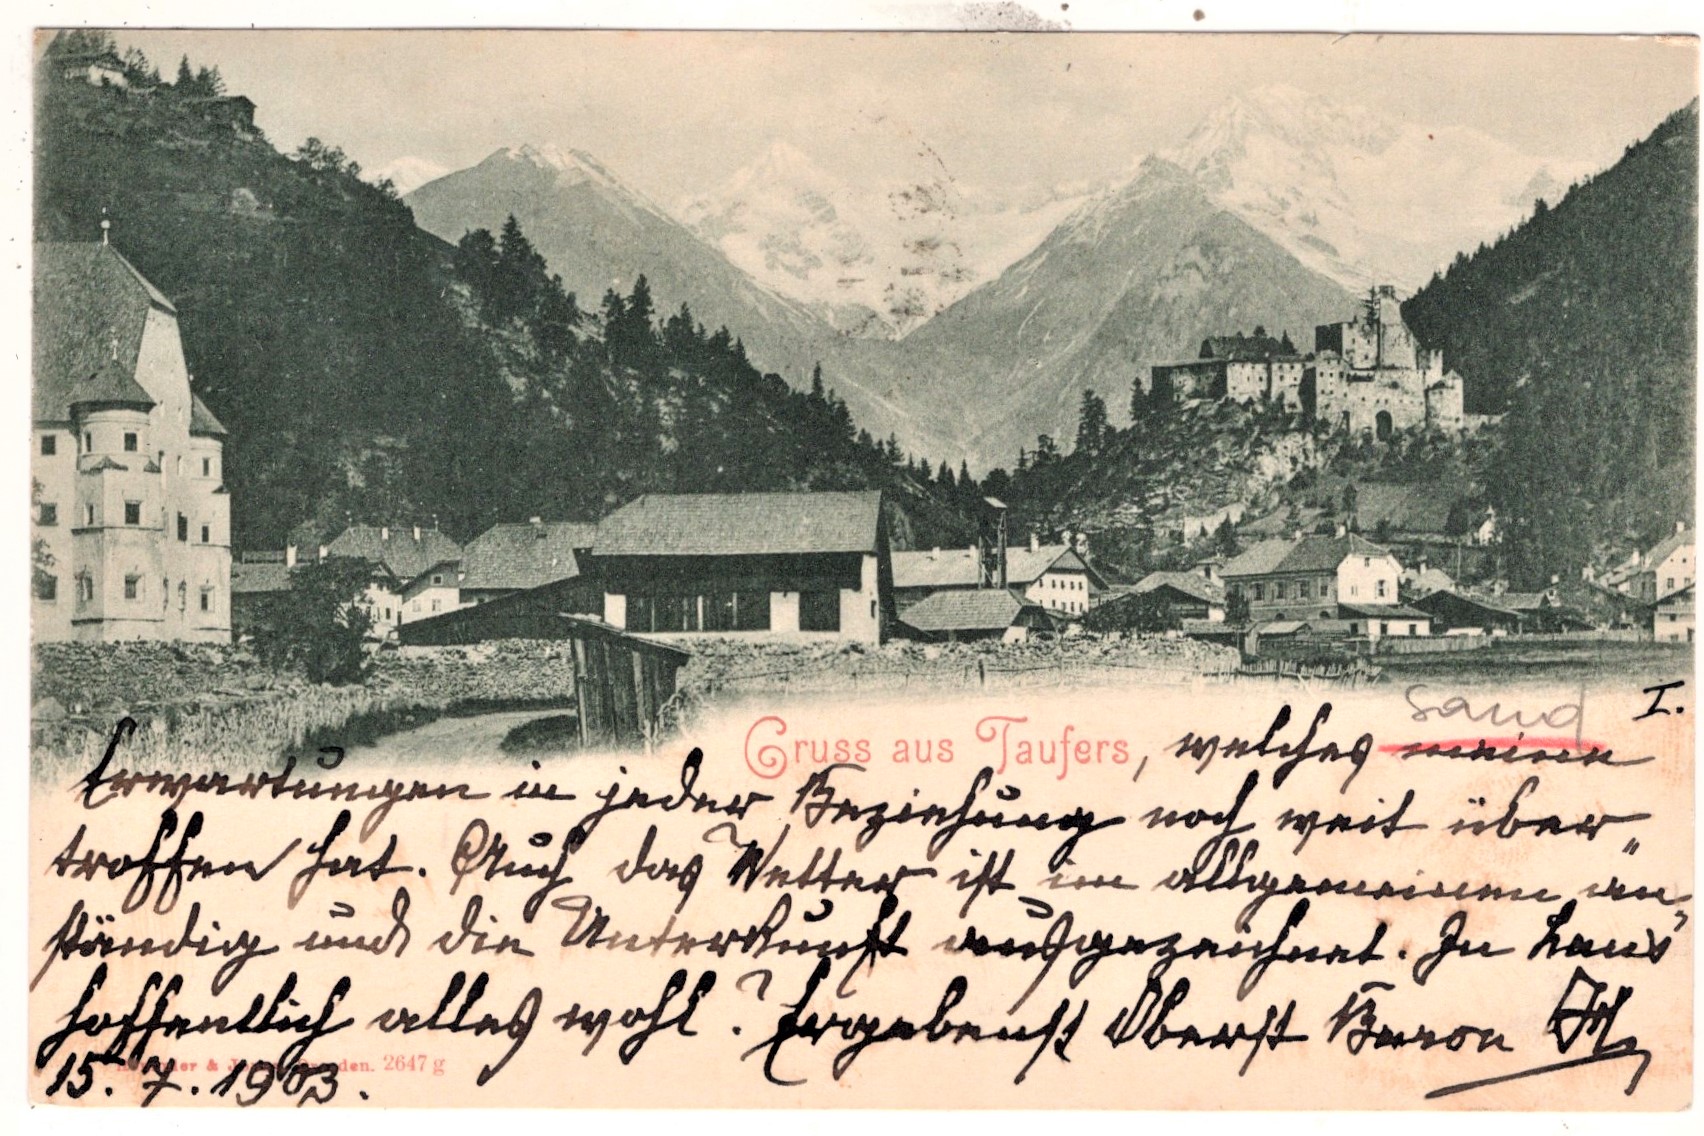 Sand I.
Gruss aus Taufers, welches meine
Erwartungen in jeder Beziehung noch weit über„
troffen hat. Auch das Wetter ist im allgemeinen an„
ständig und die Unterkunft ausgezeichnet. In
hoffentlich alles wohl? Ergebenst Oberst Baron
15.7.1903. 2647 g